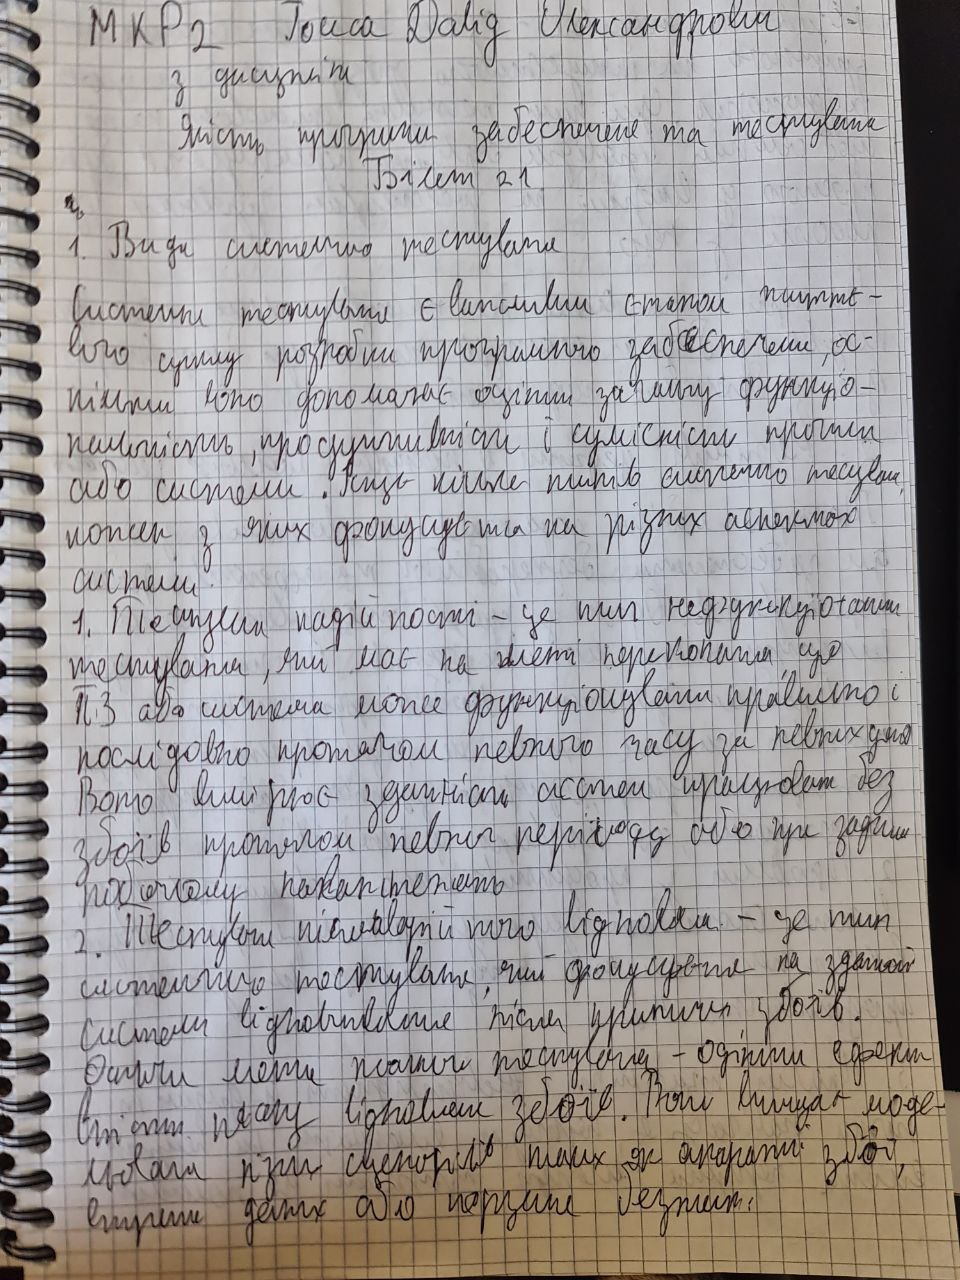 МКР2 Гоша Давід Олександрович
з дисципліни
Якість програмн забеспечене та тестуваня
Білет 21
1. Види системно тестуваня
Системне тестуваня є важливим етапом життє-
вого циклу розробки програмного забеспечення, ос-
кільки воно допомагає оцінити загальну функціо-
нальність, продуктивність і сумісність програми
або системи. Існує кілька типів системно тестуван,
кожен з яких фокусується на різних аспектах
системи.
1. Тестуван надійності - це тип нефункціональн
тестуваня, який має на меті переконатися, що
П.З або система може функціонувати правильно і
послідовно протягом певного часу за певних умов
Воно вимірює здатність системи працювати без
збоїв протягом певног періоду або при заданим
робочому навантежень
2. Тестуван післяаварійного відновлен - це тип
системного тестуваня, який фокусуєтся на здатност
системи відновлюватися після критичн збоїв.
Основна мета такого тестуваня - оцінити ефект
ивність відновлен збоїв. Воно включає моде-
лювання різни сценаріїв таких як апаратні збої,
втрата даних або порушене безпеки.